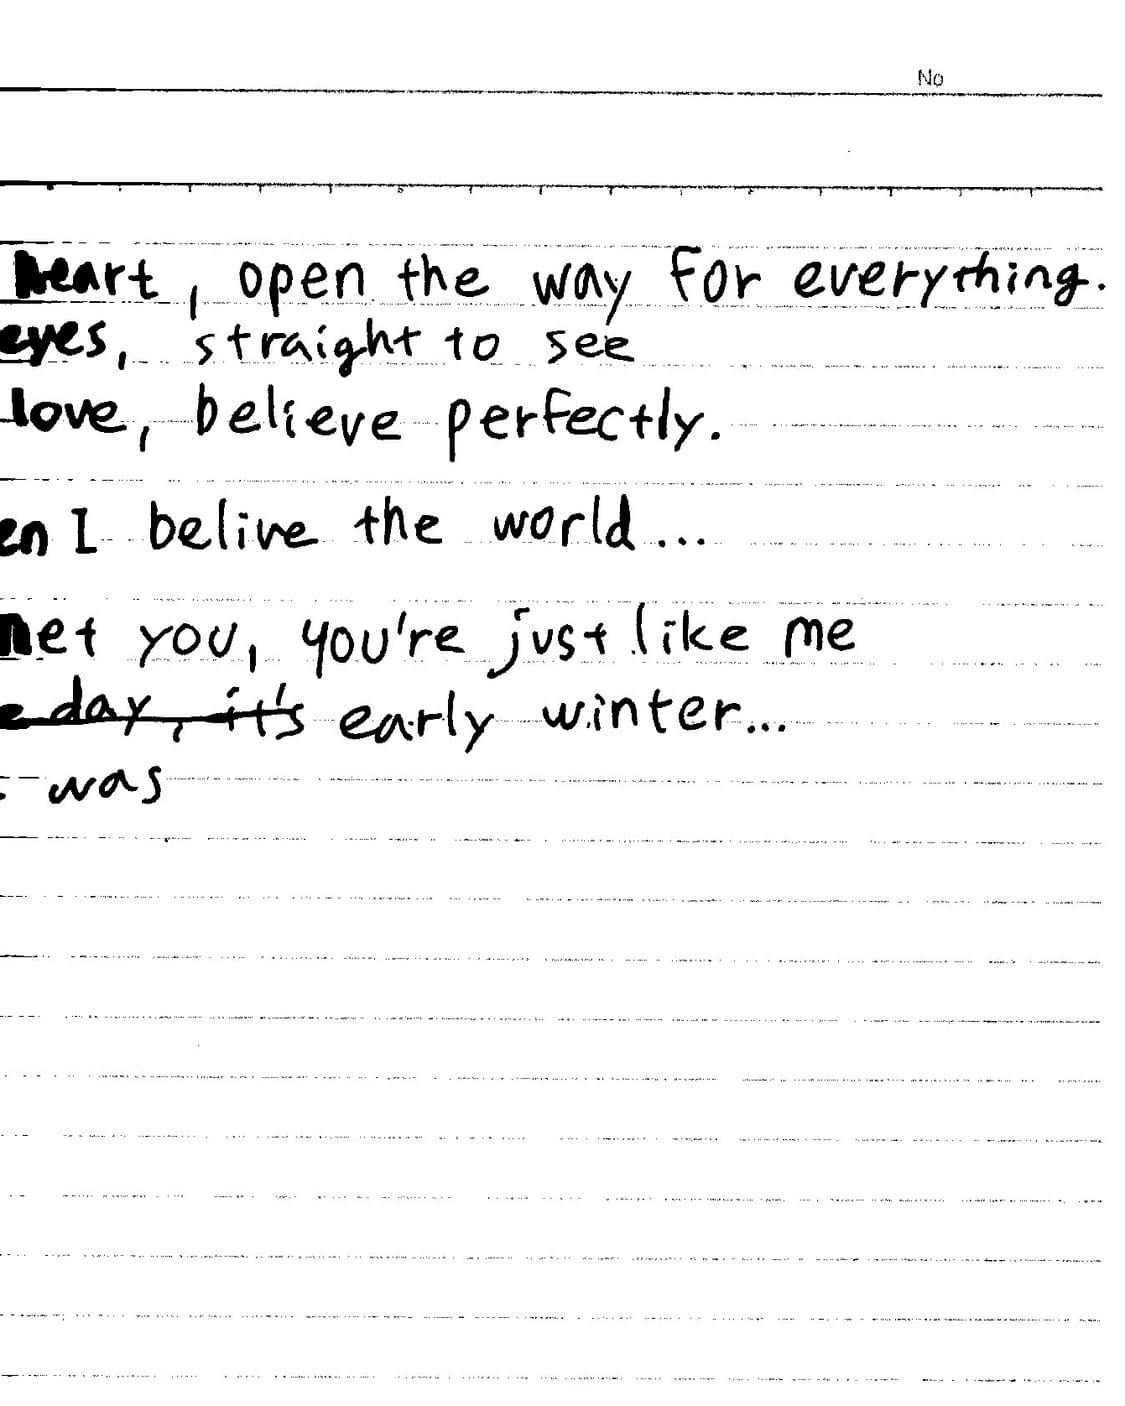 No
heart, open the way for everything.
eyes, straight to see
love, believe perfectly.
en I belive the world...
met you, you're just like me
day, it's early winter...
was